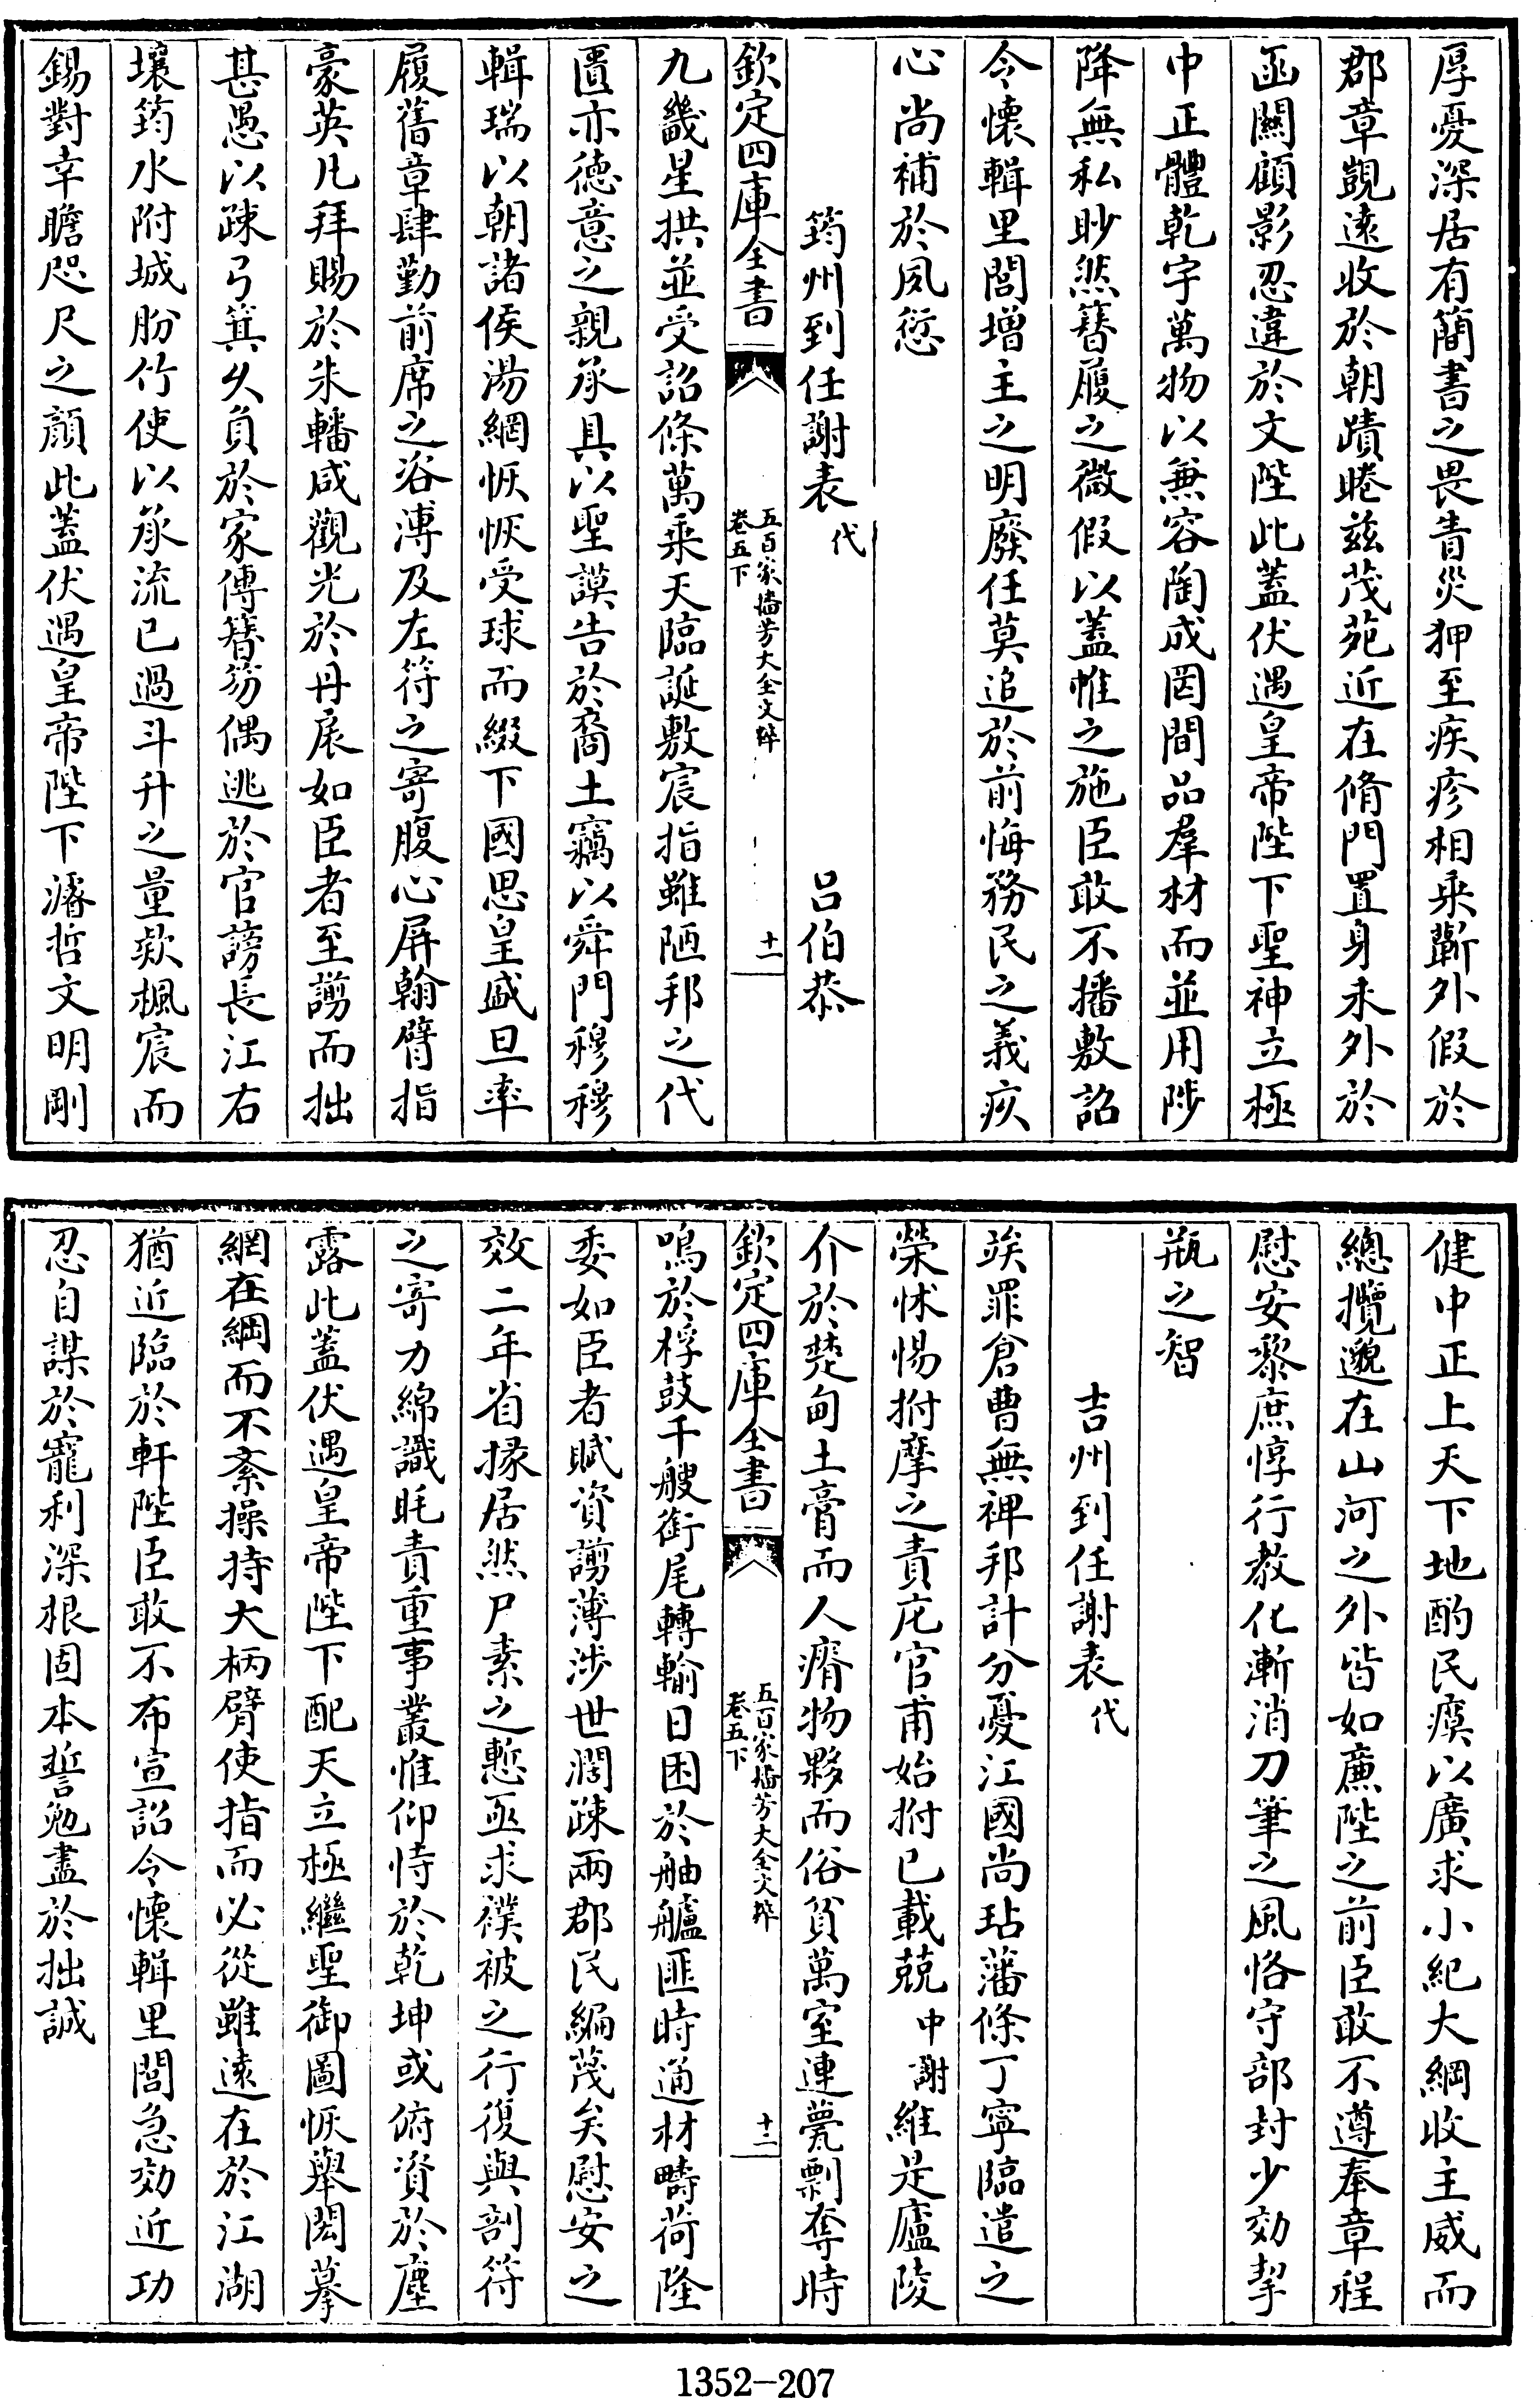 厚憂深居有簡書之畏眚災狎至疾疹相乘蘄外假於
郡章覬遠收於朝蹟睠茲茂苑近在脩門置身未外於
函關顧影忍違於文陛此蓋伏遇皇帝陛下聖神立極
中正體乾宇萬物以兼容陶成罔間品羣材而並用陟
降無私眇然簪履之微假以蓋帷之施臣敢不播敷詔
令懷輯里閭增主之明廢任莫追於前悔務民之義疚
心尚補於夙愆
筠州到任謝表代 呂伯恭
欽定四庫全書 五百家播芳大全文粹 卷五下 十一
九畿星拱並受詔條萬乘天臨誕敷宸指雖陋邦之代
匱亦德意之親承具以聖謨告於裔土竊以舜門穆穆
輯瑞以朝諸侯湯網恢恢受球而綴下國思皇盛旦率
履舊章肆勤前席之咨溥及左符之寄腹心屏翰臂指
豪英凡拜賜於朱轓咸觀光於丹扆如臣者至謭而拙
甚愚以疎弓箕夂負於家傳簪笏偶逃於官謗長江右
壤筠水附城肦竹使以承流已過斗升之量欸楓宸而
錫對幸瞻咫尺之顏此蓋伏遇皇帝陛下濬哲文明剛
健中正上天下地酌民瘼以廣求小紀大綱收主威而
總攬邈在山河之外皆如廉陛之前臣敢不遵奉章程
慰安黎庶惇行教化漸消刀筆之風恪守部封少効挈
瓶之智
吉州到任謝表代
竢罪倉曹無裨邦計分憂江國尚玷藩條丁寧臨遣之
榮怵惕拊摩之責庀官甫始拊已載兢中謝維是廬陵
介於楚甸土膏而人瘠物夥而俗貧萬室連甍剽奪時
欽定四庫全書 五百家播芳大全文粹 卷五下 十二
鳴於桴鼓千艘銜尾轉輸日困於舳艫匪時通材疇荷隆
委如臣者賦資謭薄涉世濶疎兩郡民編蔑矣慰安之
效二年省掾居然尸素之慙亟求襆被之行復與剖符
之寄力綿識眊責重事叢惟仰恃於乾坤或俯資於塵
露此蓋伏遇皇帝陛下配天立極繼聖御圖恢舉閎摹
網在綱而不紊操持大柄臂使指而必從雖遠在於江湖
猶近臨於軒陛臣敢不布宣詔令懷輯里閭急効近功
忍自謀於寵利深根固本誓勉盡於拙誠
1352-207